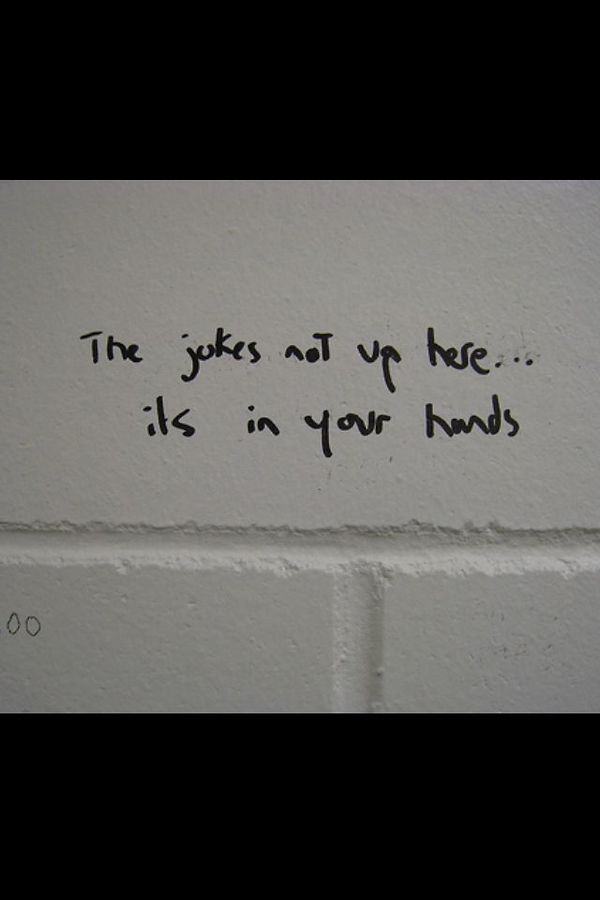 The jokes not up here...
its in your hands
00